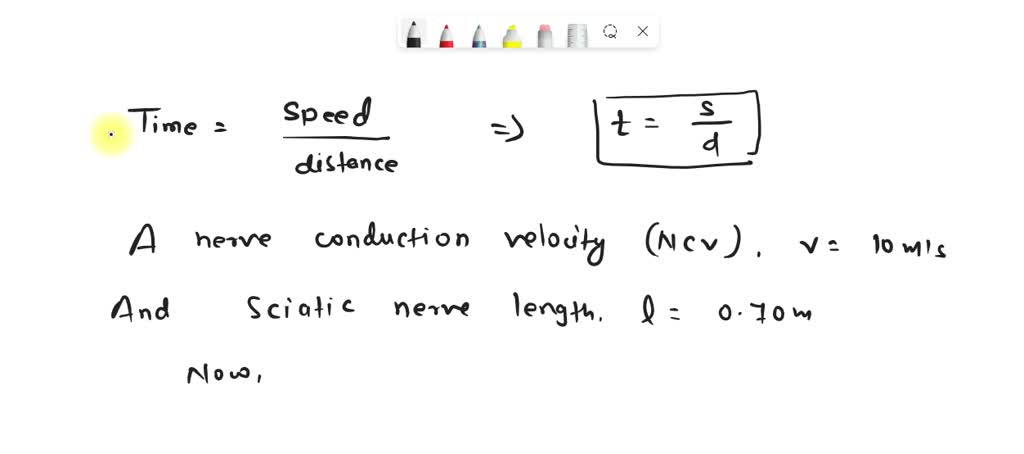 Time = Speed / distance => t = s / d
A nerve conduction velocity (NCV). v = 10 m/s
And Sciatic nerve length. l = 0.70 m
Now,